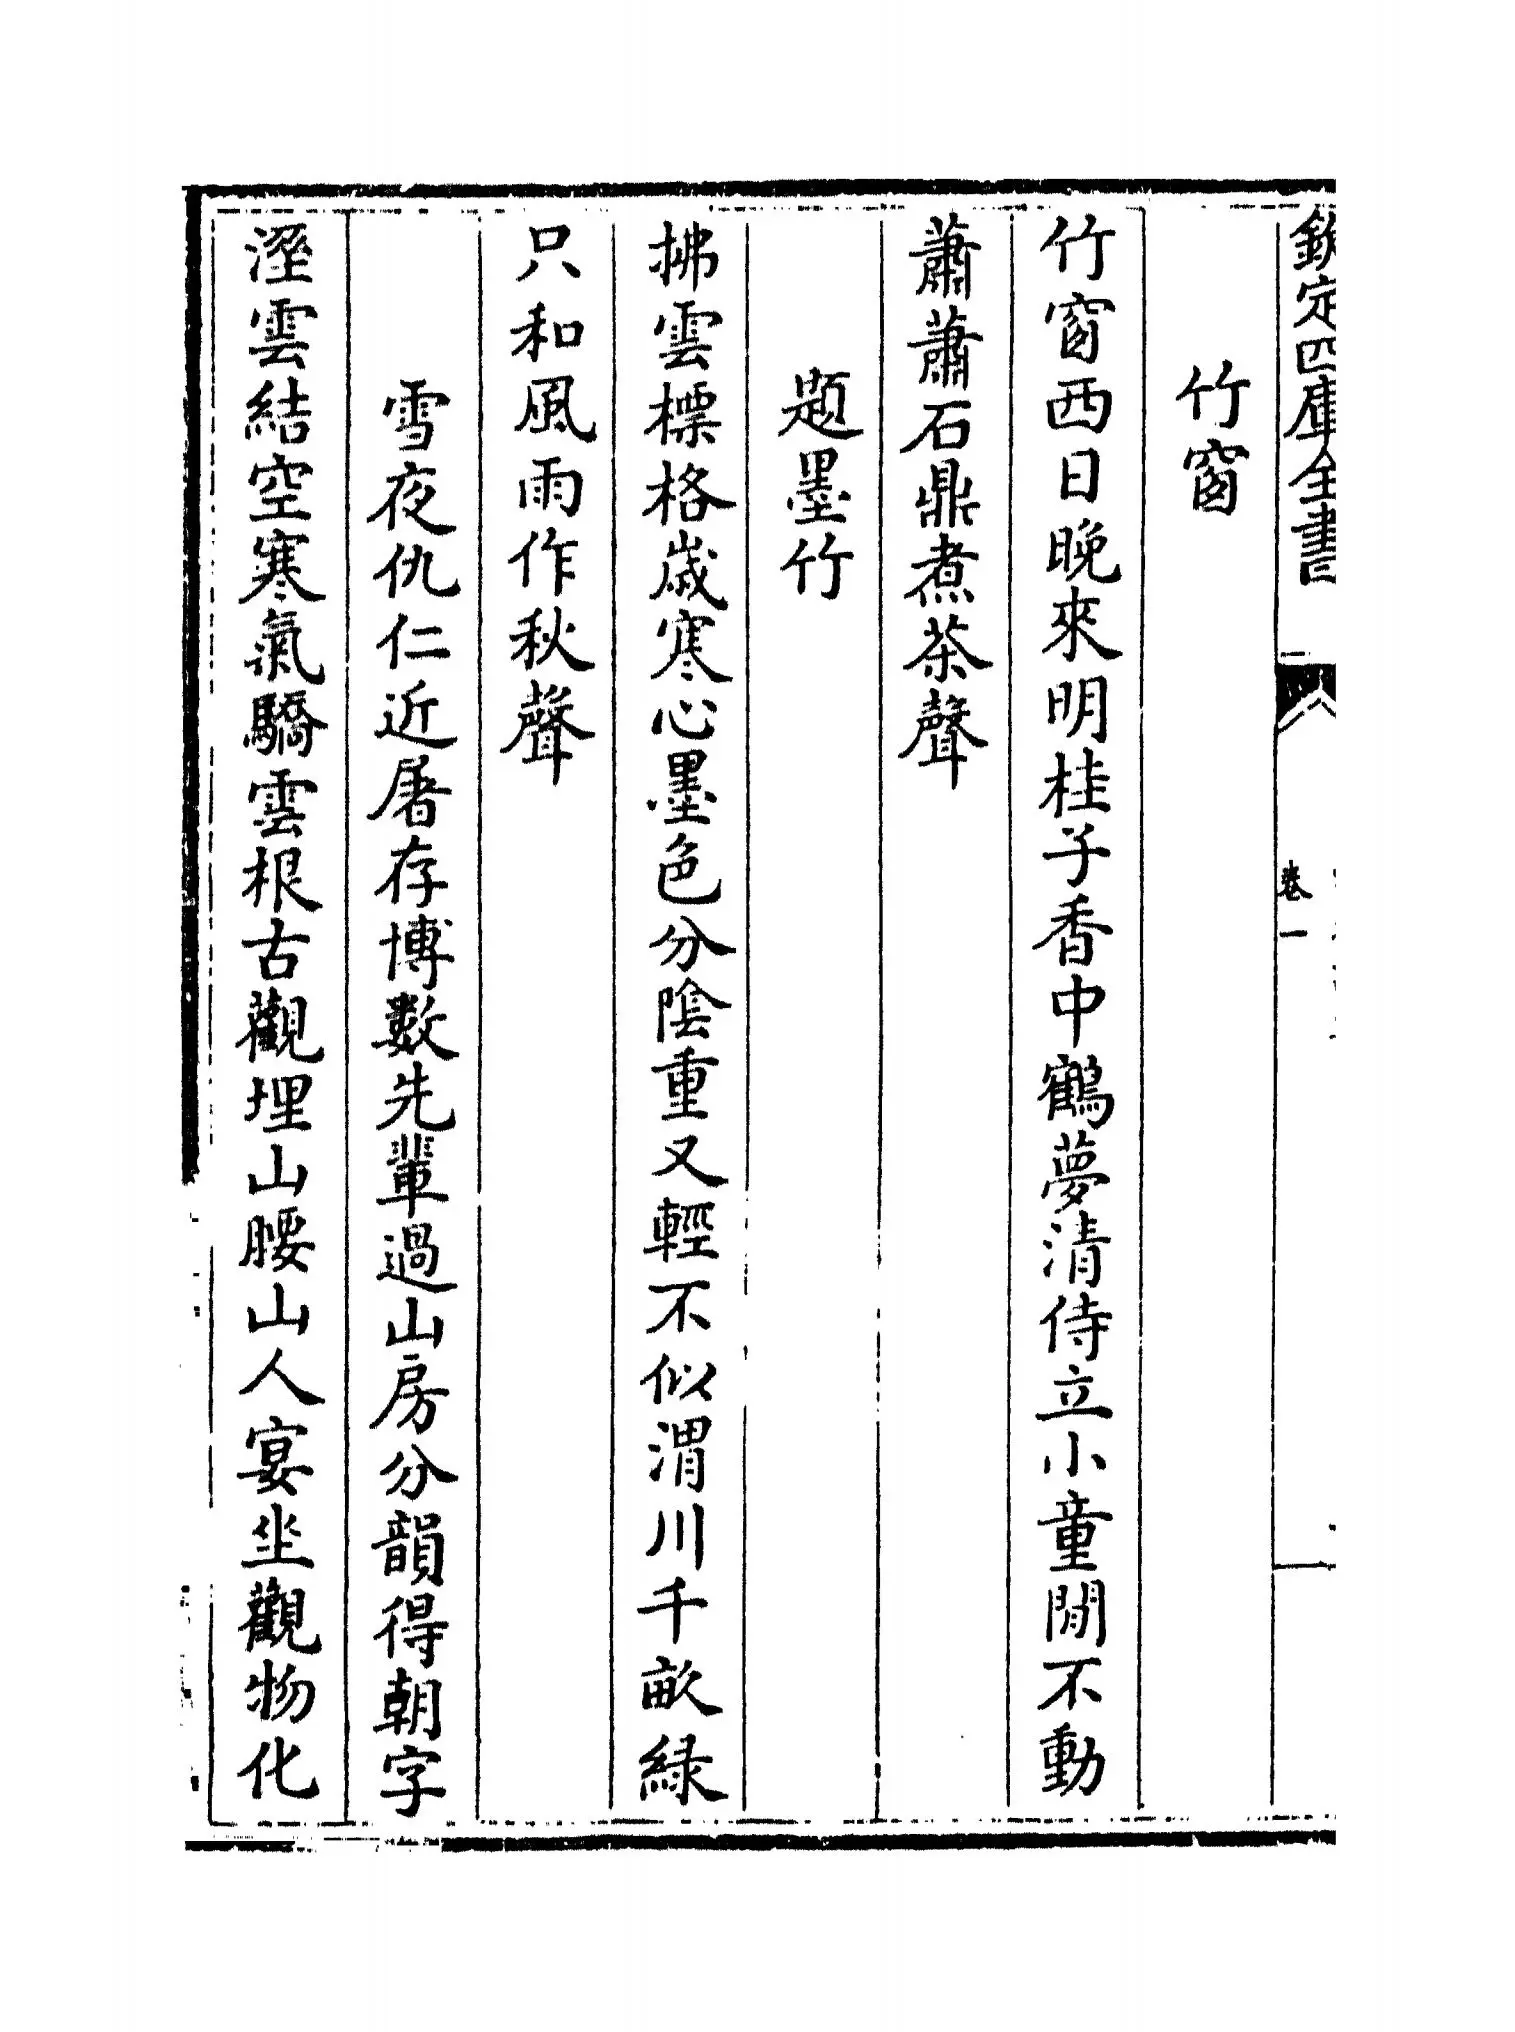 欽定四庫全書
卷一
竹窗
竹窗西日晚來明桂子香中鶴夢清侍立小童閒不動
蕭蕭石鼎煮茶聲
題墨竹
拂雲標格歲寒心墨色分陰重又輕不似渭川千畝綠
只和風雨作秋聲
雪夜仇仁近屠存博數先輩過山房分韻得朝字
溼雲結空寒氣驕雲根古觀埋山腰山人宴坐觀物化